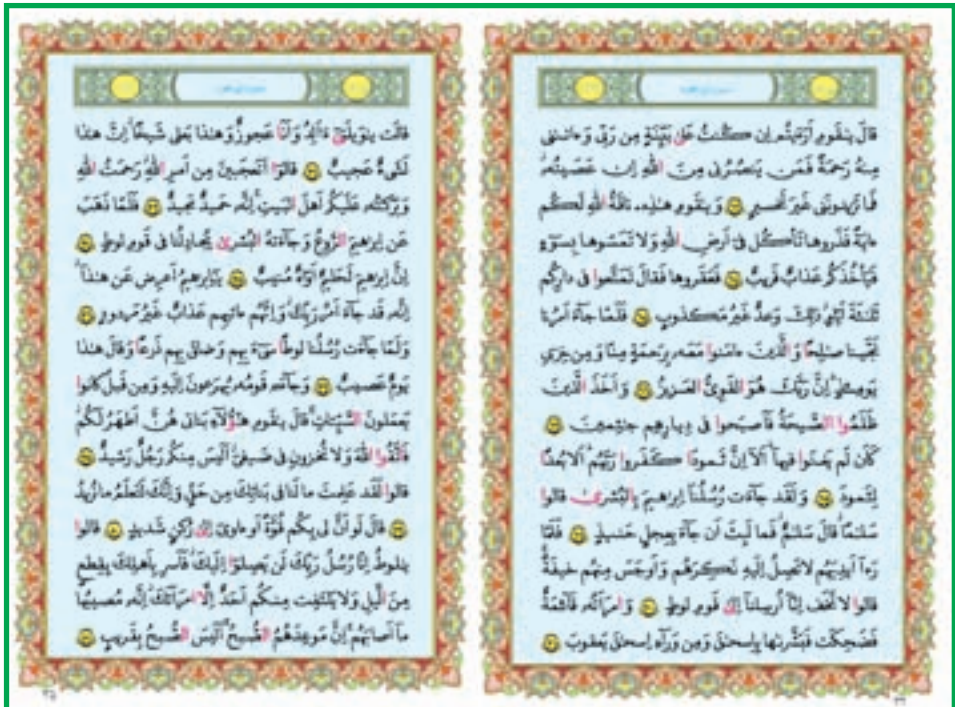 قَالَ يَٰقَوْمِ أَرَءَيْتُمْ إِن كُنتُ عَلَىٰ بَيِّنَةٍ مِن رَبِّي وَءَاتَىٰنِي
مِنْهُ رَحْمَةً فَمَن يَنصُرُنِي مِنَ اللَّهِ إِنْ عَصَيْتُهُ
فَمَا تَزِيدُونَنِي غَيْرَ تَخْسِيرٍ وَيَٰقَوْمِ هَٰذِهِ نَاقَةُ اللَّهِ لَكُمْ
ءَايَةً فَذَرُوهَا تَأْكُلْ فِي أَرْضِ اللَّهِ وَلَا تَمَسُّوهَا بِسُوٓءٍ
فَيَأْخُذَكُمْ عَذَابٌ قَرِيبٌ فَعَقَرُوهَا فَقَالَ تَمَتَّعُوا فِي دَارِكُمْ
ثَلَٰثَةَ أَيَّامٍ ذَٰلِكَ وَعْدٌ غَيْرُ مَكْذُوبٍ فَلَمَّا جَآءَ أَمْرُنَا
نَجَّيْنَا صَٰلِحًا وَالَّذِينَ ءَامَنُوا مَعَهُ بِرَحْمَةٍ مِنَّا وَمِنْ خِزْيِ
يَوْمِئِذٍ إِنَّ رَبَّكَ هُوَ الْقَوِيُّ الْعَزِيزُ وَأَخَذَ الَّذِينَ
ظَلَمُوا الصَّيْحَةُ فَأَصْبَحُوا فِي دِيَٰرِهِمْ جَٰثِمِينَ
كَأَن لَمْ يَغْنَوْا فِيهَا أَلَآ إِنَّ ثَمُودَا كَفَرُوا رَبَّهُمْ أَلَا بُعْدًا
لِثَمُودَ وَلَقَدْ جَآءَتْ رُسُلُنَآ إِبْرَٰهِيمَ بِالْبُشْرَىٰ قَالُوا
سَلَٰمًا قَالَ سَلَٰمٌ فَمَا لَبِثَ أَن جَآءَ بِعِجْلٍ حَنِيذٍ فَلَمَّا
رَءَآ أَيْدِيَهُمْ لَا تَصِلُ إِلَيْهِ نَكِرَهُمْ وَأَوْجَسَ مِنْهُمْ خِيفَةً
قَالُوا لَا تَخَفْ إِنَّآ أُرْسِلْنَآ إِلَىٰ قَوْمِ لُوطٍ وَامْرَأَتُهُ قَآئِمَةٌ
فَضَحِكَتْ فَبَشَّرْنَٰهَا بِإِسْحَٰقَ وَمِن وَرَآءِ إِسْحَٰقَ يَعْقُوبَ
قَالَتْ يَٰوَيْلَتَىٰٓ ءَأَلِدُ وَأَنَا عَجُوزٌ وَهَٰذَا بَعْلِي شَيْخًا إِنَّ هَٰذَا
لَشَيْءٌ عَجِيبٌ قَالُوا أَتَعْجَبِينَ مِنْ أَمْرِ اللَّهِ رَحْمَتُ اللَّهِ
وَبَرَكَٰتُهُ عَلَيْكُمْ أَهْلَ الْبَيْتِ إِنَّهُ حَمِيدٌ مَجِيدٌ فَلَمَّا ذَهَبَ
عَنْ إِبْرَٰهِيمَ الرَّوْعُ وَجَآءَتْهُ الْبُشْرَىٰ يُجَٰدِلُنَا فِي قَوْمِ لُوطٍ
إِنَّ إِبْرَٰهِيمَ لَحَلِيمٌ أَوَّٰهٌ مُنِيبٌ يَٰٓإِبْرَٰهِيمُ أَعْرِضْ عَنْ هَٰذَآ
إِنَّهُ قَدْ جَآءَ أَمْرُ رَبِّكَ وَإِنَّهُمْ ءَاتِيهِمْ عَذَابٌ غَيْرُ مَرْدُودٍ
وَلَمَّا جَآءَتْ رُسُلُنَا لُوطًا سِيٓءَ بِهِمْ وَضَاقَ بِهِمْ ذَرْعًا وَقَالَ هَٰذَا
يَوْمٌ عَصِيبٌ وَجَآءَهُ قَوْمُهُ يُهْرَعُونَ إِلَيْهِ وَمِن قَبْلُ كَانُوا
يَعْمَلُونَ السَّيِّـَٔاتِ قَالَ يَٰقَوْمِ هَٰٓؤُلَآءِ بَنَاتِي هُنَّ أَطْهَرُ لَكُمْ
فَاتَّقُوا اللَّهَ وَلَا تُخْزُونِ فِي ضَيْفِي أَلَيْسَ مِنكُمْ رَجُلٌ رَشِيدٌ
قَالُوا لَقَدْ عَلِمْتَ مَا لَنَا فِي بَنَاتِكَ مِنْ حَقٍّ وَإِنَّكَ لَتَعْلَمُ مَا نُرِيدُ
قَالَ لَوْ أَنَّ لِي بِكُمْ قُوَّةً أَوْ ءَاوِي إِلَىٰ رُكْنٍ شَدِيدٍ قَالُوا
يَٰلُوطُ إِنَّا رُسُلُ رَبِّكَ لَن يَصِلُوٓا إِلَيْكَ فَأَسْرِ بِأَهْلِكَ بِقِطْعٍ
مِنَ الَّيْلِ وَلَا يَلْتَفِتْ مِنكُمْ أَحَدٌ إِلَّا امْرَأَتَكَ إِنَّهُ مُصِيبُهَا
مَآ أَصَابَهُمْ إِنَّ مَوْعِدَهُمُ الصُّبْحُ أَلَيْسَ الصُّبْحُ بِقَرِيبٍ